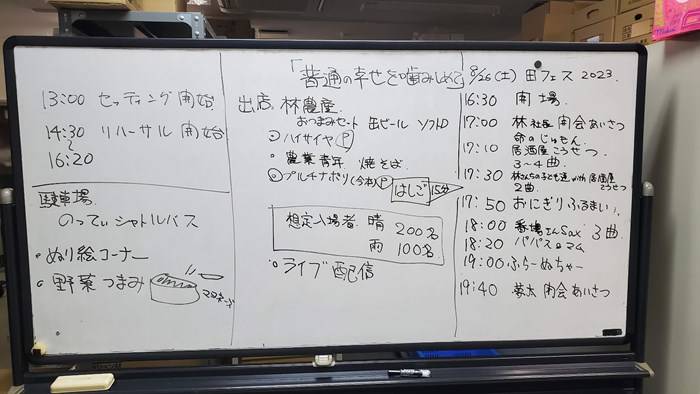 「普通の幸せを噛みしめる
8/26(土) 田フェス 2023.
13:00 セッティング開始
14:30 リハーサル開始
〜
16:20
駐車場
のってぃシャトルバス
・ぬり絵コーナー
・野菜つまみ
マヨネーズ
出店 林農産
おつまみセット 缶ビール ソフトD
ハイサイヤ P
・農業青年 焼そば
プルチナポリ(今本) P
はしご 15分
想定入場者 晴 200名
雨 100名
ライブ配信
16:30 開場
17:00 林社長 開会あいさつ
17:10 命のじゅもん
居酒屋こうせつ
3〜4曲
17:30 林さんちの子ども達 with 居酒屋こうせつ
2曲
17:50 おにぎりふるまい
18:00 番場さんSax 3曲
18:20 パパス&マム
19:00 ふらーぬちゃー
19:40 閉会あいさつ